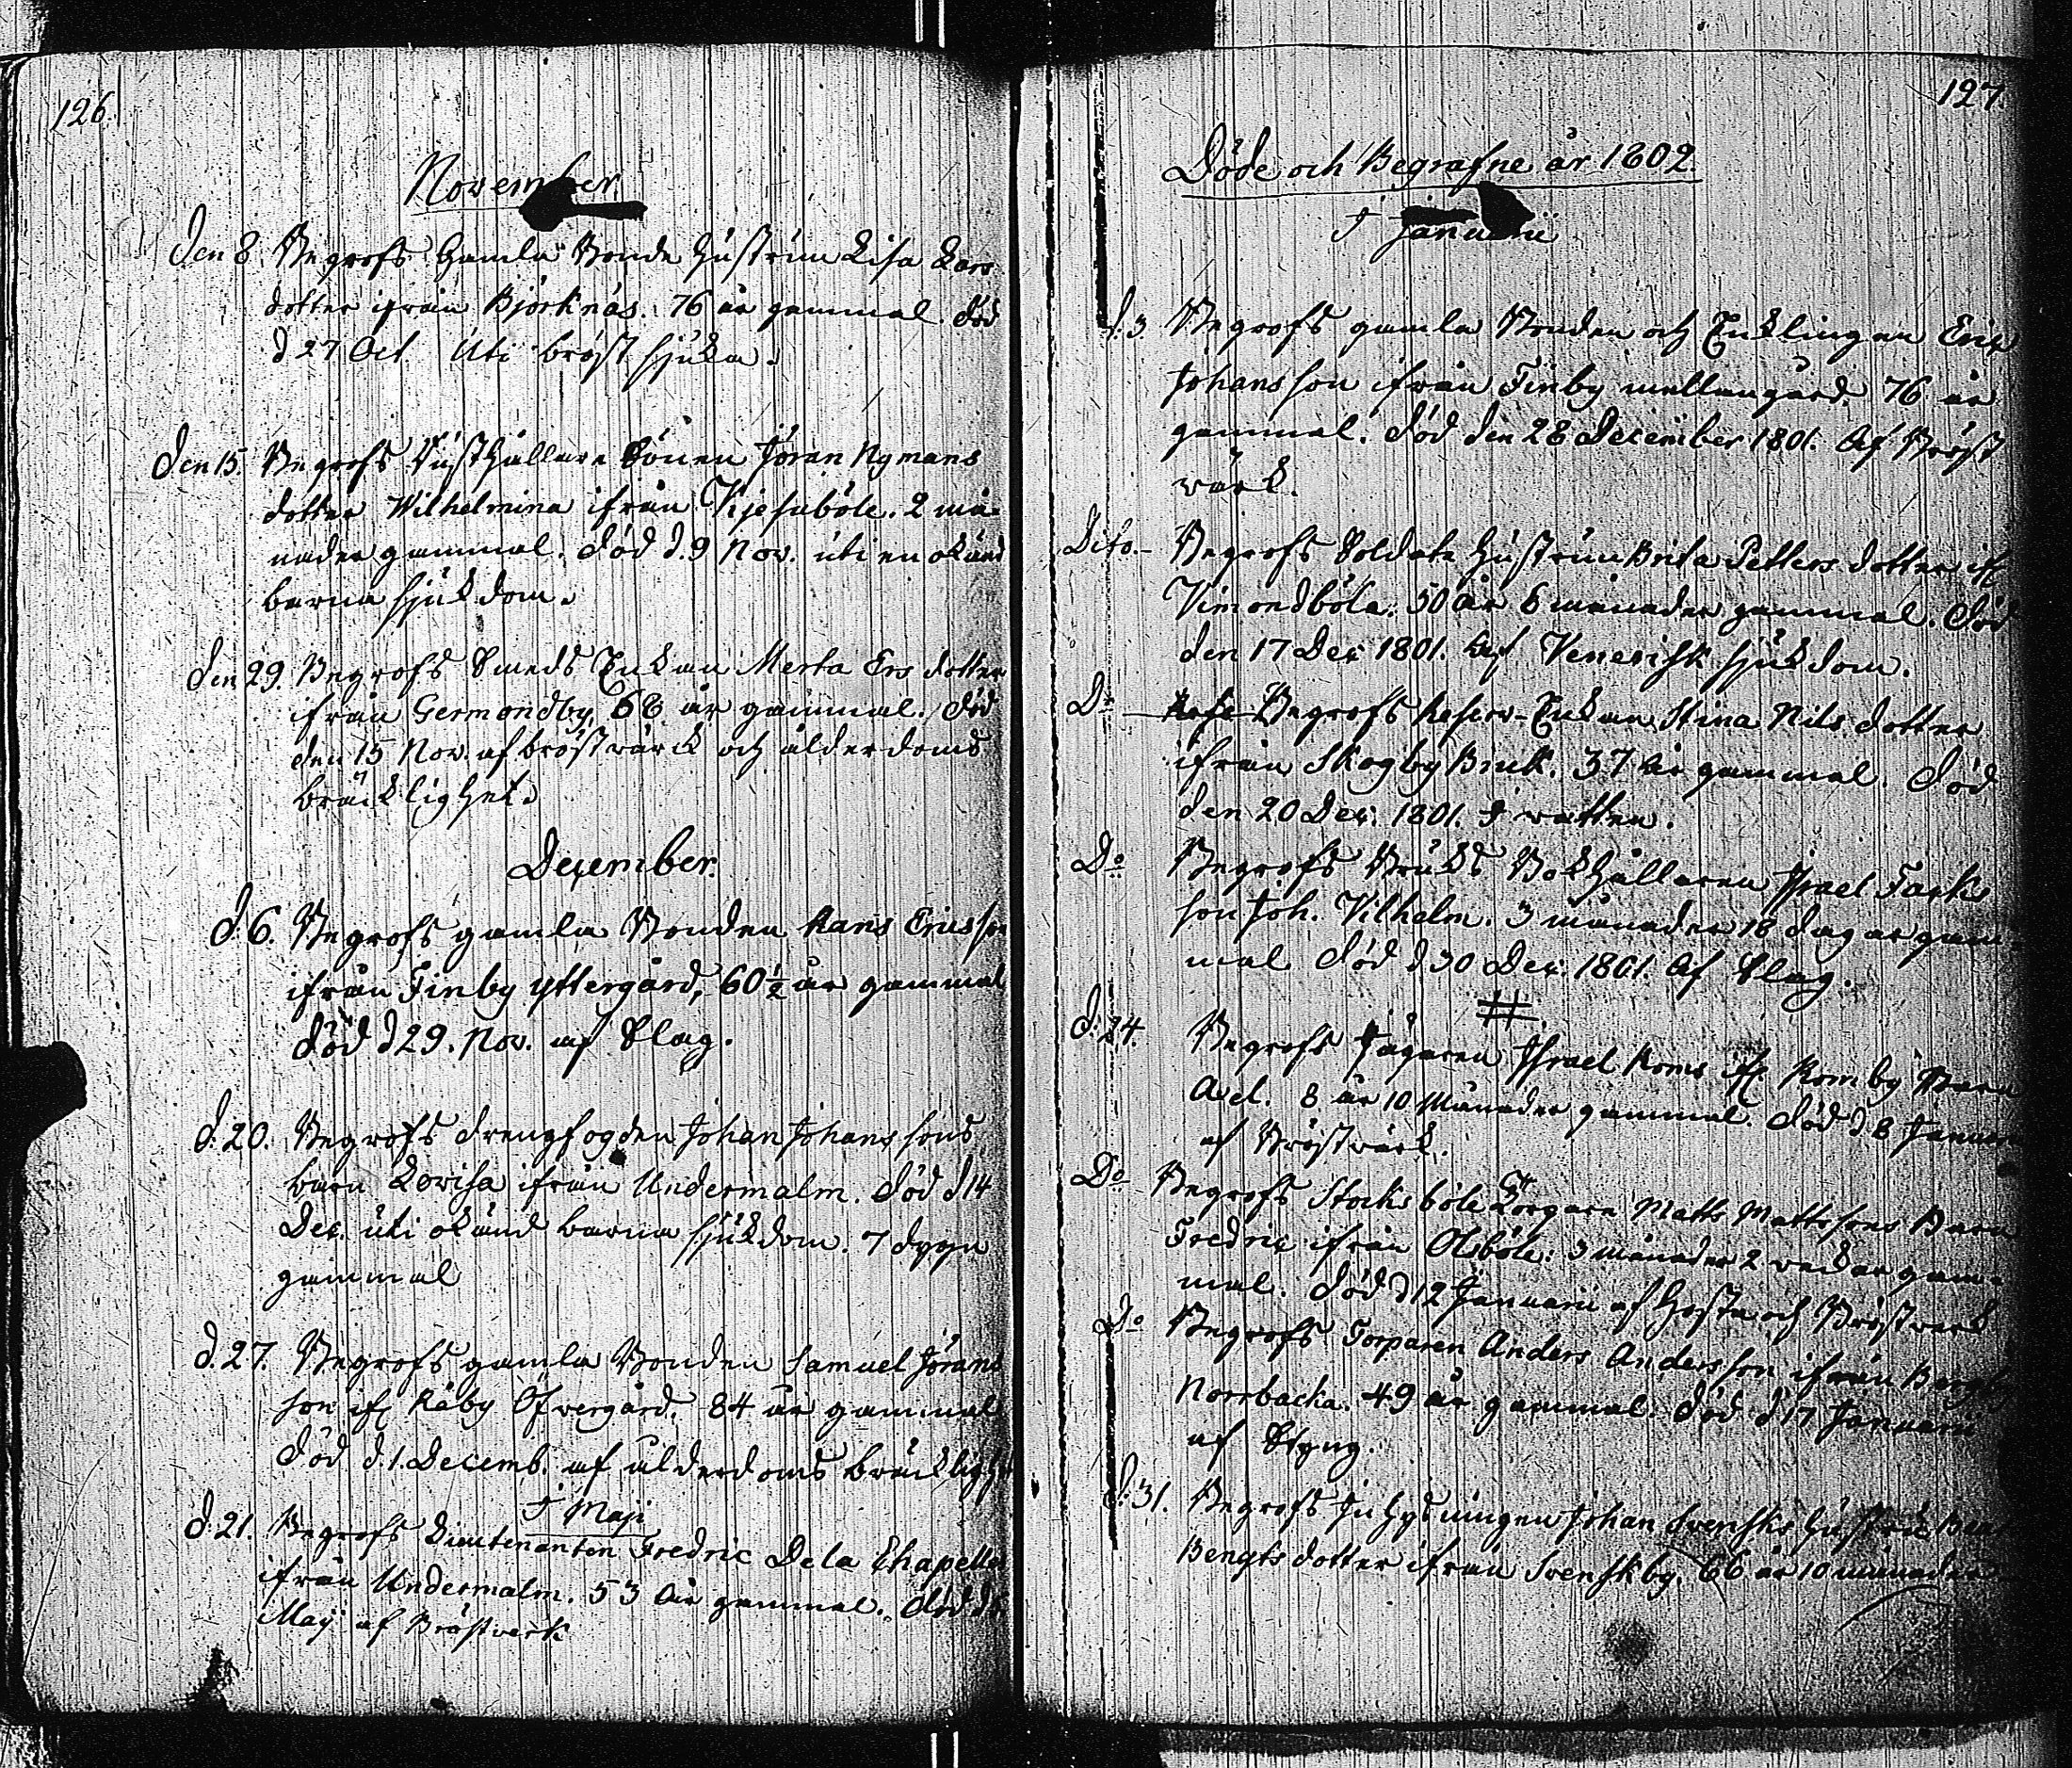 126.
November
Den 8. Begrofs Gamla Bonde Hustrun Lisa Lars
dotter ifrån Björknäs. 76 år gammal. död
d 27 Oct. Uti bröst sjuka.
Den 15. Begrofs Rusthållare Sonen Jöran Nymans
dotter Wilhelmina ifrån Kjesaböle. 2 må-
nader gammal. död d. 9 Nov. uti en okänd
barna sjukdom.
Den 29. Begrofs Smeds Enkan Merta Ers dotter
ifrån Germondby, 68 år gammal. död
den 15 Nov. af bröstvärck och ålderdoms
bräcklighet.
December.
d. 6. Begrofs gamla Bonden Hans Ericsson
ifrån Finby yttergård, 60 1/2 år gammal
död d 29. Nov. af Slag.
d. 20. Begrofs drengfogden Johan Johanssons
barn Lovisa ifrån Undermalm. död d 14
Dec. uti okänd barna sjukdom. 7 dygn
gammal
d. 27. Begrofs gamla Bonden Samuel Jörans
son if Råby Öfvergård. 84 år gammal
död d. 1. Decemb. af ålderdoms bräcklighet
I Maji
d. 21. Begrofs Lieutenanten Fredric De la Chapelle
ifrån Undermalm. 53 år gammal. död d.
Maij af Bröstverk
127.
Döde och Begrafne år 1802.
I Januarii
d. 3. Begrofs gamla Bonden och Enklingen Eric
Johansson ifrån Finby mellangård. 76 år
gammal. död den 28 December 1801. Af Bröst
värck.
Dito.- Begrofs Soldate hustrun Brita Petters dotter if
Vimondböla. 50 år 6 månader gammal. död
den 17 Dec 1801. Af Venerisk sjukdom.
Do Begrofs Reserv-Enkan Stina Nils dotter
ifrån Skogby Bruk. 37 år gammal. död
den 20 Dec. 1801. I vatten.
Do Begrofs Bruks Bokhållaren Israel Fack
son Joh. Vilhelm. 3 månader 18 dagar gam-
mal död d 30 Dec. 1801. Af Slag.
d. 24. Begrofs Jägaren Israel Roms if Romby Barn
Axel. 8 år 10 Månader gammal. död d 8 Januarii
af Bröstvärck.
Do Begrofs Stocksböle Torpare Matts Mattssons Barn
Fredric ifrån Olsböle. 3 månader 2 veckor gam-
mal. död d 12 Januarii af Hosta och Bröstverk
Do Begrofs Torparen Anders Andersson ifrån
Norrbacka. 49 år gammal. död d 17 Januarii
af Styng.
d. 31. Begrofs Inhysningen Johan Svensks hustru
Bengts dotter ifrån Svenskby. 66 år 10 månader